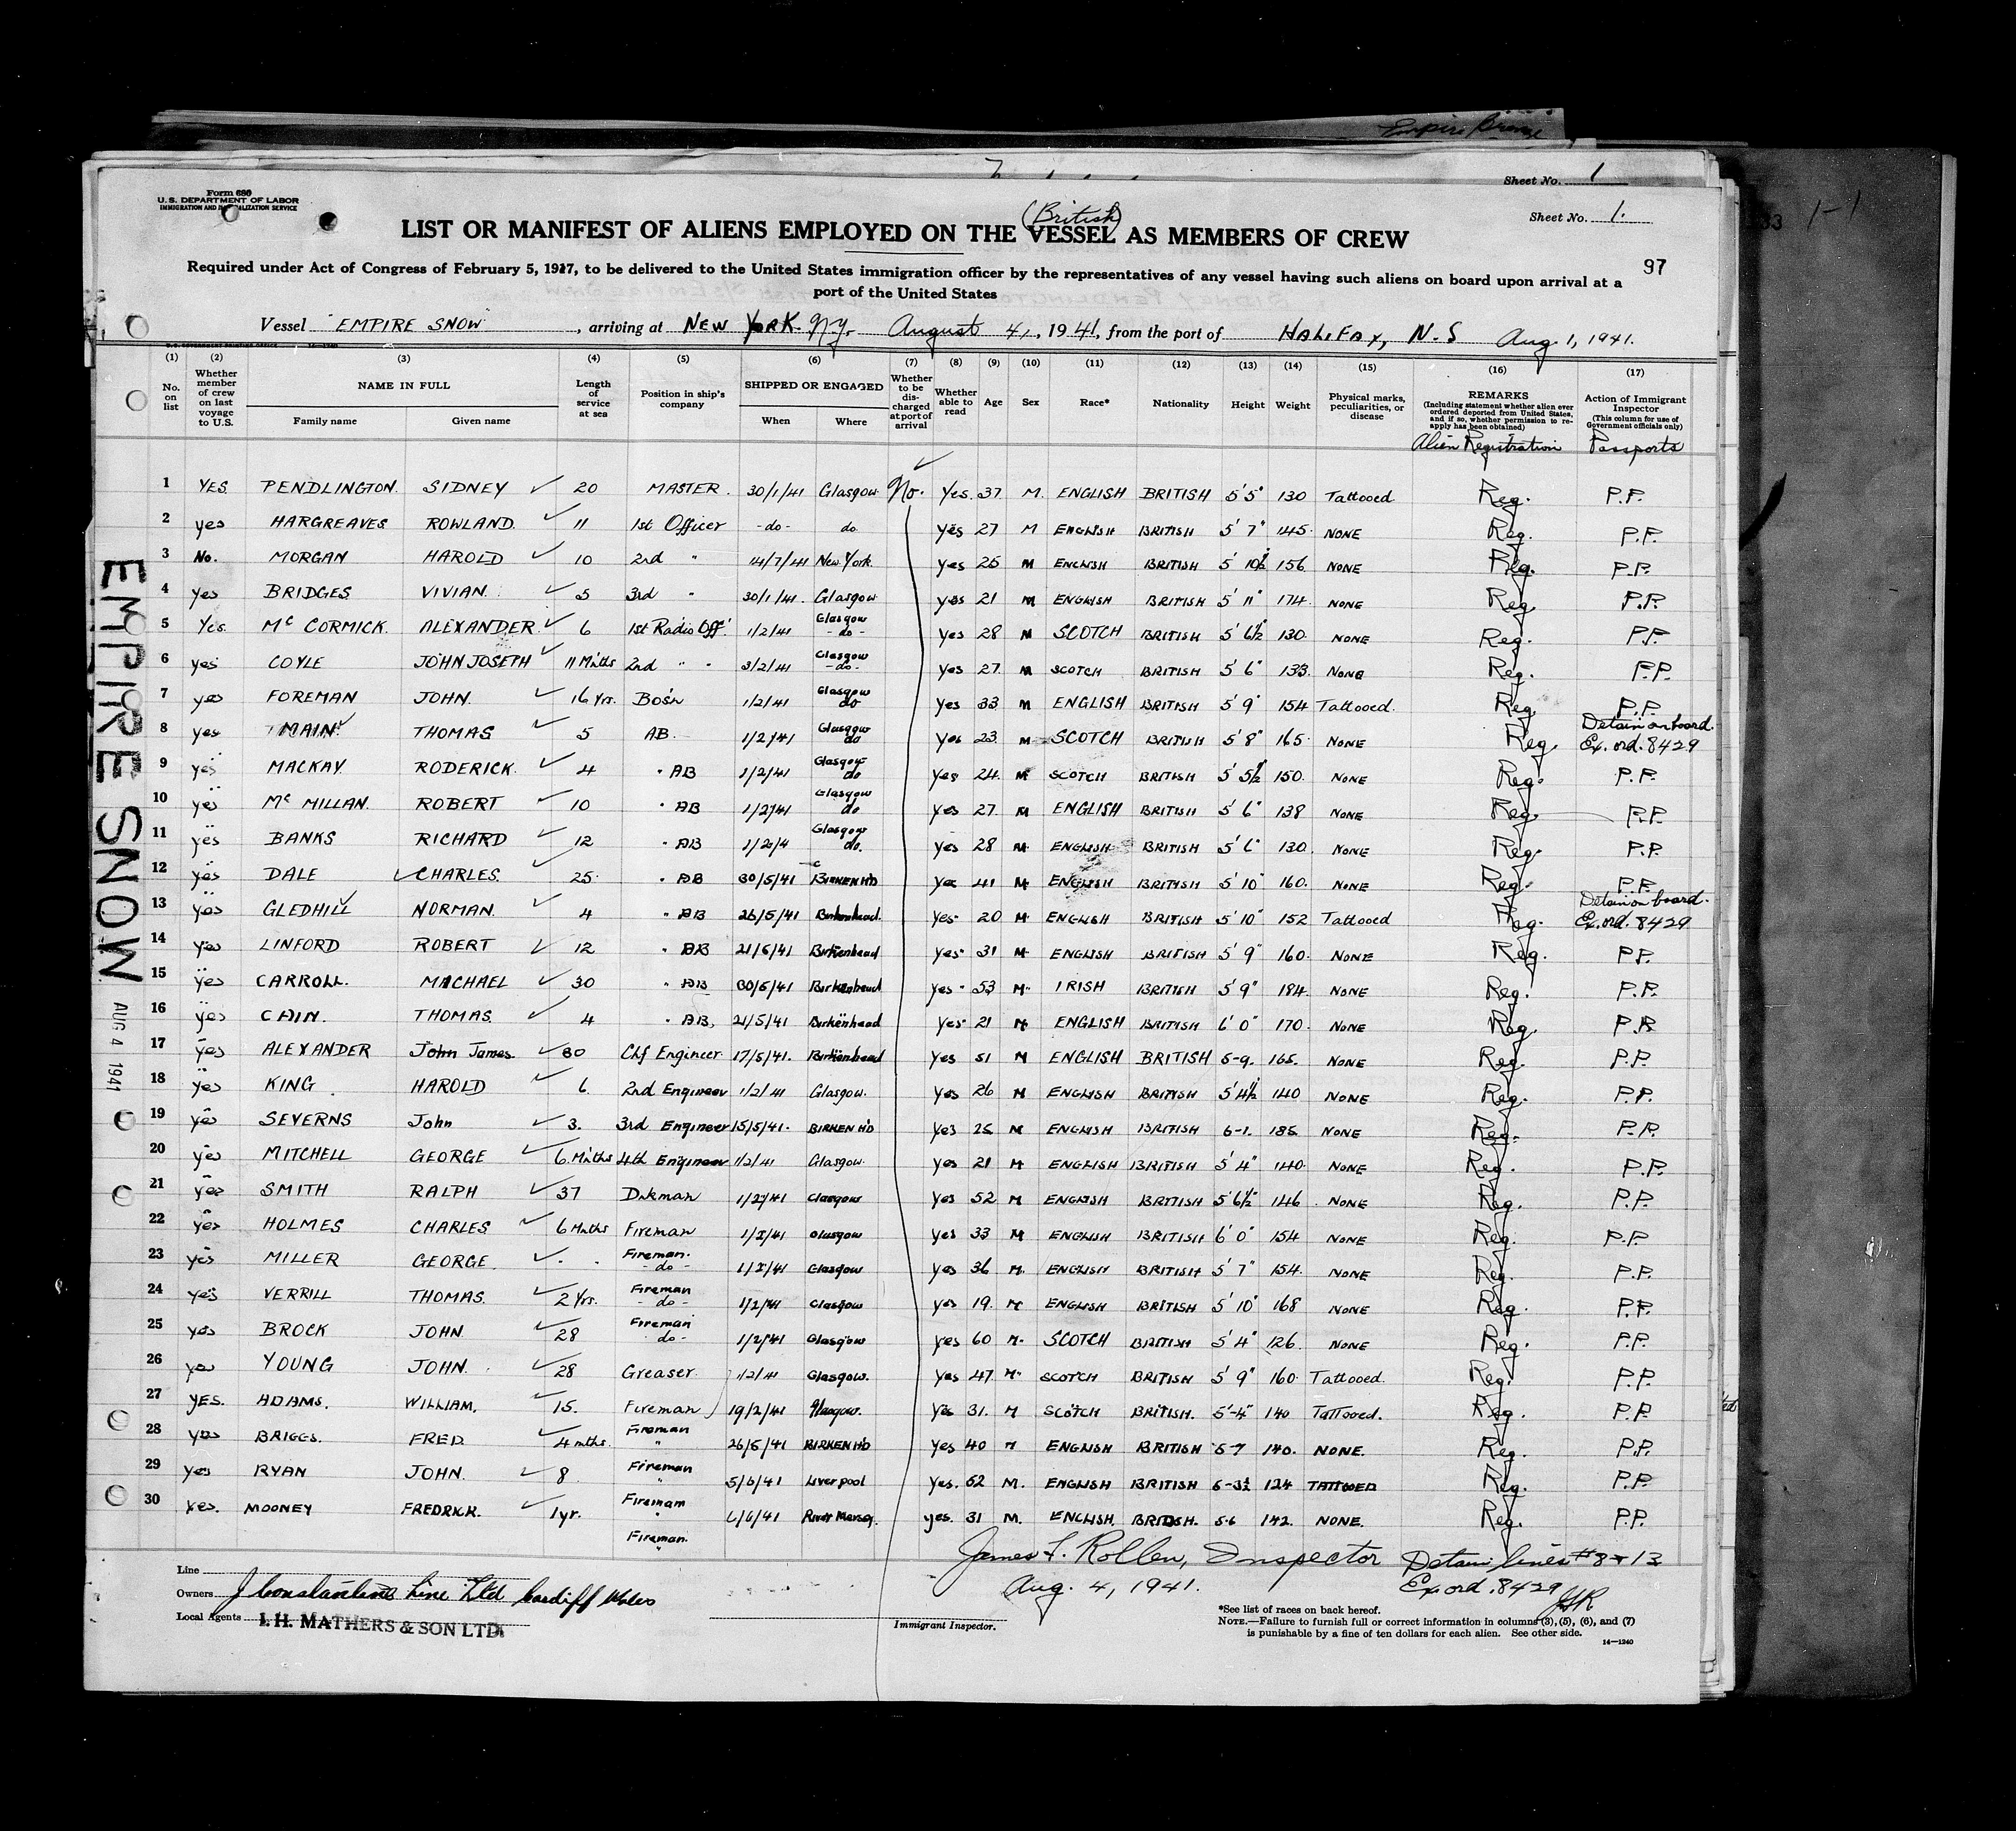 Empire Bronze
Sheet No. 1
Form 680
U.S. DEPARTMENT OF LABOR
IMMIGRATION AND NATURALIZATION SERVICE
Sheet No. 1.
(British)
LIST OR MANIFEST OF ALIENS EMPLOYED ON THE VESSEL AS MEMBERS OF CREW
97
Required under Act of Congress of February 5, 1917, to be delivered to the United States immigration officer by the representatives of any vessel having such aliens on board upon arrival at a
port of the United States
Vessel "EMPIRE SNOW", arriving at NEW YORK N.Y. August 4, 1941, from the port of HALIFAX, N.S Aug 1, 1941.
(1) (2) (3) (4) (5) (6) (7) (8) (9) (10) (11) (12) (13) (14) (15) (16) (17)
No. on list
Whether member of crew on last voyage to U.S.
NAME IN FULL
Family name Given name
Length of service at sea
Position in ship's company
SHIPPED OR ENGAGED
When Where
Whether to be discharged at port of arrival
Whether able to read
Age
Sex
Race*
Nationality
Height
Weight
Physical marks, peculiarities, or disease
REMARKS
(Including statement whether alien ever ordered deported from United States, and if so, whether permission to reapply has been obtained)
Alien Registration
Action of Immigrant Inspector
(This column for use of Government officials only)
Passports
1 YES. PENDLINGTON. SIDNEY 20 MASTER. 30/1/41 Glasgow No. Yes. 37 M. ENGLISH BRITISH 5'5" 130 Tattooed Reg. P.P.
2 yes HARGREAVES ROWLAND. 11 1st Officer -do- do yes 27 M ENGLISH BRITISH 5'7" 145 NONE Reg. P.P.
3 No. MORGAN HAROLD 10 2nd " 14/7/41 New York yes 25 M ENGLISH BRITISH 5'10½ 156 NONE Reg. P.P.
4 yes BRIDGES VIVIAN. 5 3rd " 30/1/41. Glasgow yes 21 M ENGLISH BRITISH 5'11" 174 NONE Reg. P.P.
5 Yes. McCORMICK. ALEXANDER. 6 1st Radio Off. 1/2/41 Glasgow -do- yes 28 M SCOTCH BRITISH 5'6½ 130. NONE Reg. P.P.
6 yes COYLE JOHN JOSEPH 11 Mnths 2nd " " 3/2/41 Glasgow -do- yes 27. M SCOTCH BRITISH 5'6" 133. NONE Reg. P.P.
7 yes FOREMAN JOHN. 16 Yrs. Bos'n 1/2/41 Glasgow do yes 33 M ENGLISH BRITISH 5'9" 154 Tattooed. Reg. P.P.
8 yes MAIN THOMAS 5 AB. 1/2/41 Glasgow do yes 23 M SCOTCH BRITISH 5'8" 165 NONE Reg. Detain on board. Ex. ord. 8429
9 yes MACKAY RODERICK. 4 " AB 1/2/41 Glasgow do yes 24. M SCOTCH BRITISH 5'5½ 150. NONE Reg. P.P.
10 yes McMILLAN. ROBERT 10 " AB 1/2/41 Glasgow do yes 27. M ENGLISH BRITISH 5'6" 138 NONE Reg. P.P.
11 yes BANKS RICHARD 12 " AB 1/2/4 Glasgow do. yes 28 M ENGLISH BRITISH 5'6" 130. NONE Reg. P.P.
12 yes DALE CHARLES. 25. " AB 30/5/41 BIRKENH'D yes 41 M ENGLISH BRITISH 5'10" 160. NONE Reg. P.P.
13 yes GLEDHILL NORMAN. 4 " AB 26/5/41 Birkenhead. yes 20 M ENGLISH BRITISH 5'10" 152 Tattooed Reg. Detain on board. Ex. ord. 8429
14 yes LINFORD ROBERT 12 " AB 21/5/41 Birkenhead yes 31 M ENGLISH BRITISH 5'9" 160. NONE Reg. P.P.
15 yes CARROLL. MICHAEL 30 " AB 30/5/41 Birkenhead yes 53 M IRISH BRITISH 5'9" 184. NONE Reg. P.P.
16 yes CAIN. THOMAS. 4 " AB. 21/5/41 Birkenhead yes 21 M ENGLISH BRITISH 6'0" 170. NONE Reg. P.P.
17 yes ALEXANDER John James. 30 Chf Engineer 17/5/41. Birkenhead yes 51 M ENGLISH BRITISH 5-9. 165. NONE Reg. P.P.
18 yes KING. HAROLD 6. 2nd Engineer 1/2/41 Glasgow. yes 26 M ENGLISH BRITISH 5'4½ 140 NONE Reg. P.P.
19 yes SEVERNS John 3. 3rd Engineer 15/5/41. BIRKENH'D yes 25 M ENGLISH BRITISH 6-1. 185. NONE Reg. P.P.
20 yes MITCHELL GEORGE 6 Mnths 4th Engineer 1/2/41 Glasgow. yes 21 M ENGLISH BRITISH 5'4" 140. NONE Reg. P.P.
21 yes SMITH RALPH 37 Dnkman 1/2/41 Glasgow yes 52 M ENGLISH BRITISH 5'6½" 146 NONE Reg. P.P.
22 yes HOLMES CHARLES 6 Mnths Fireman 1/2/41 Glasgow yes 33 M ENGLISH BRITISH 6'0" 154 NONE Reg. P.P.
23 yes MILLER GEORGE. Fireman. -do- 1/2/41 Glasgow yes 36 M. ENGLISH BRITISH 5'7" 154. NONE Reg. P.P.
24 yes VERRILL THOMAS. 2 Yrs. Fireman -do- 1/2/41 Glasgow yes 19. M ENGLISH BRITISH 5'10" 168 NONE Reg. P.P.
25 yes BROCK JOHN 28 Fireman do- 1/2/41 Glasgow yes 60 M. SCOTCH BRITISH 5'4" 126. NONE Reg. P.P.
26 yes YOUNG JOHN. 28 Greaser. 1/2/41 Glasgow. yes 47. M. SCOTCH BRITISH 5'9" 160 Tattooed. Reg. P.P.
27 YES. ADAMS. WILLIAM. 15. Fireman 19/2/41 Glasgow. Yes 31. M SCOTCH BRITISH. 5'-4" 140 Tattooed. Reg. P.P.
28 yes BRIGGS. FRED 4 mths. Fireman " 26/5/41 BIRKENH'D yes 40 M ENGLISH BRITISH 5-7 140. NONE. Reg. P.P.
29 yes RYAN JOHN. 8 Fireman " 5/6/41 Liverpool yes. 52 M. ENGLISH BRITISH 5-3½ 124 TATTOOED Reg. P.P.
30 yes. MOONEY FREDRICK. 1 yr. Fireman " 6/6/41 River Mersey. yes. 31 M. ENGLISH. BRITISH. 5.6 142. NONE. Reg. P.P.
Fireman.
EMPIRE SNOW
AUG 4 1941
James F. Rollen, Inspector
Aug. 4, 1941.
Detain lines #8 + 13
Ex ord. 8429
Line
Owners J Constantine Line Ltd Cardiff Wales
Local Agents I. H. MATHERS & SON LTD.
Immigrant Inspector.
*See list of races on back hereof.
NOTE.—Failure to furnish full or correct information in columns (3), (5), (6), and (7)
is punishable by a fine of ten dollars for each alien. See other side.
14—1240